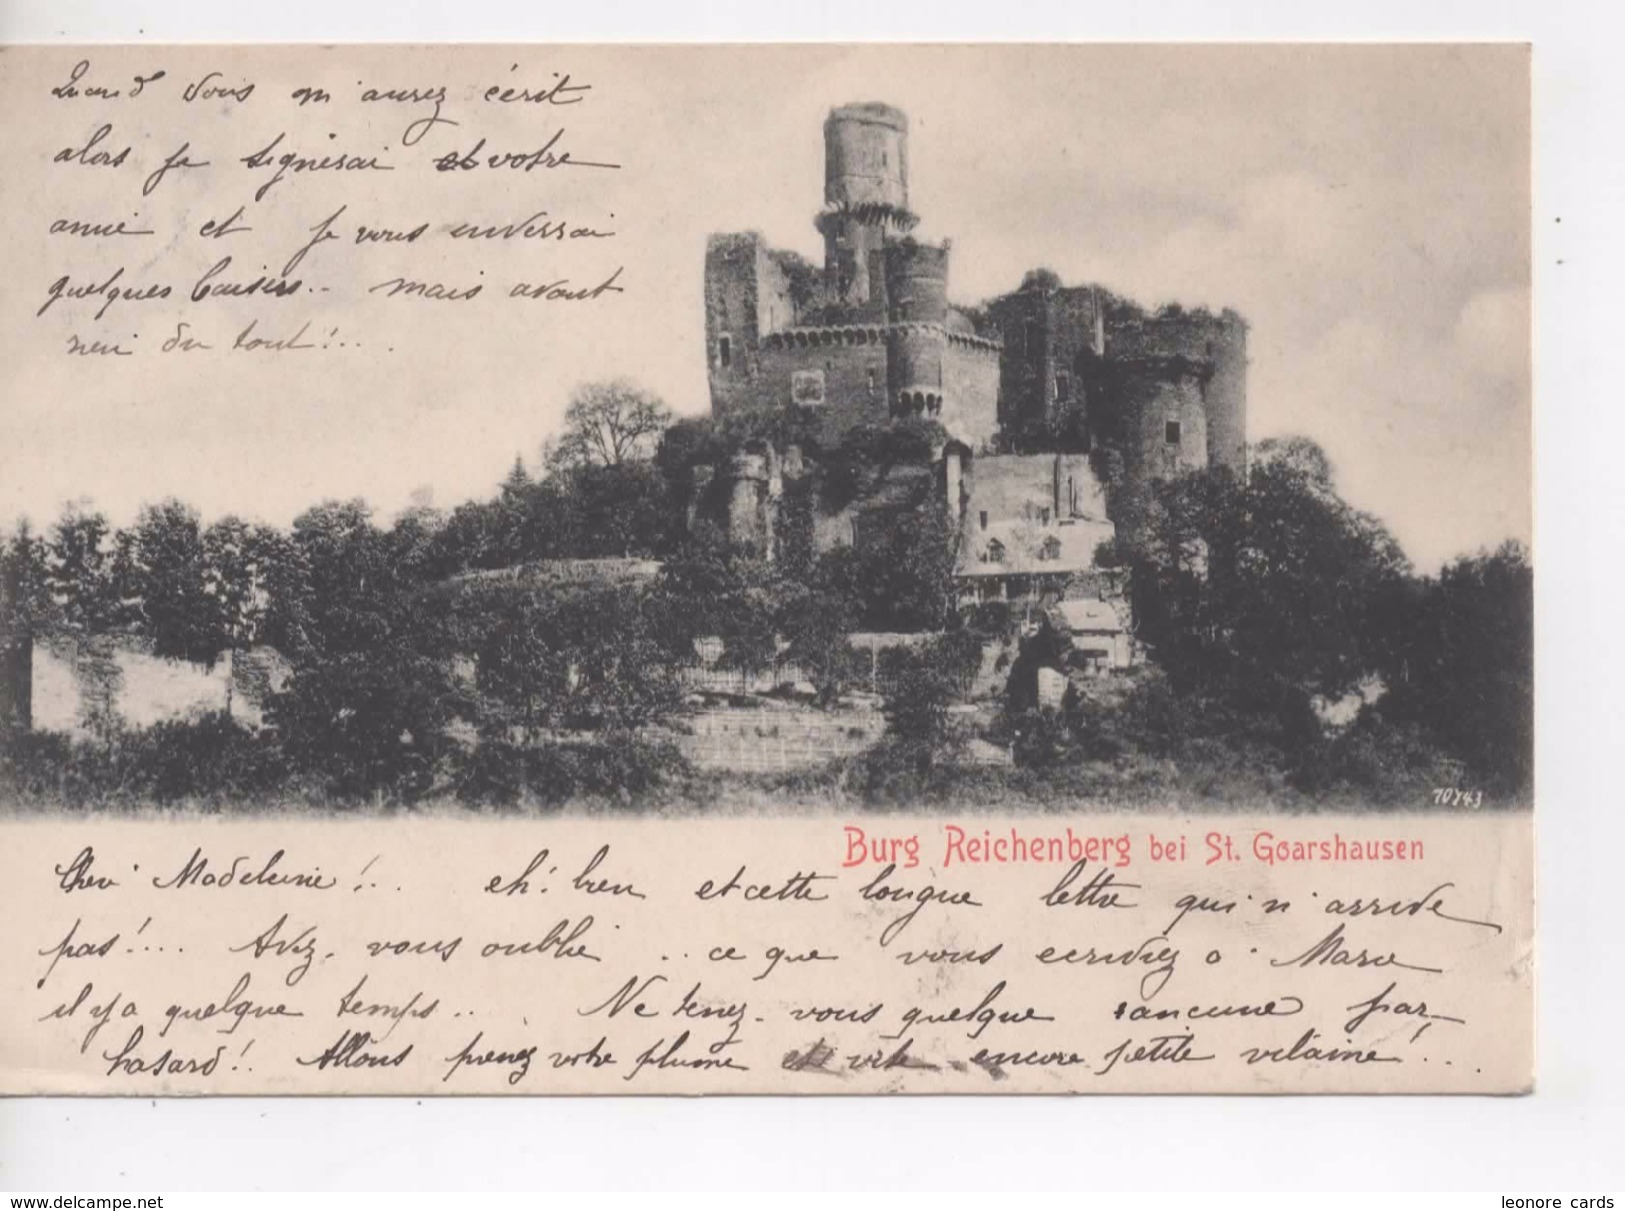 Quand vous m'aurez écrit
alors je signerai votre
amie et je vous enverrai
quelques baisers.. mais avant
rien du tout!...
70743
Burg Reichenberg bei St. Goarshausen
Chère Madeleine!.. eh! bien et cette longue lettre qui n'arrive
pas!... Avez-vous oublié .. ce que vous ecriviez a Marie
il y a quelque temps... Ne tenez-vous quelque rancune par
hasard!. Allons prenez votre plume et vite encore petite vilaine!..
www.delcampe.net
leonore cards